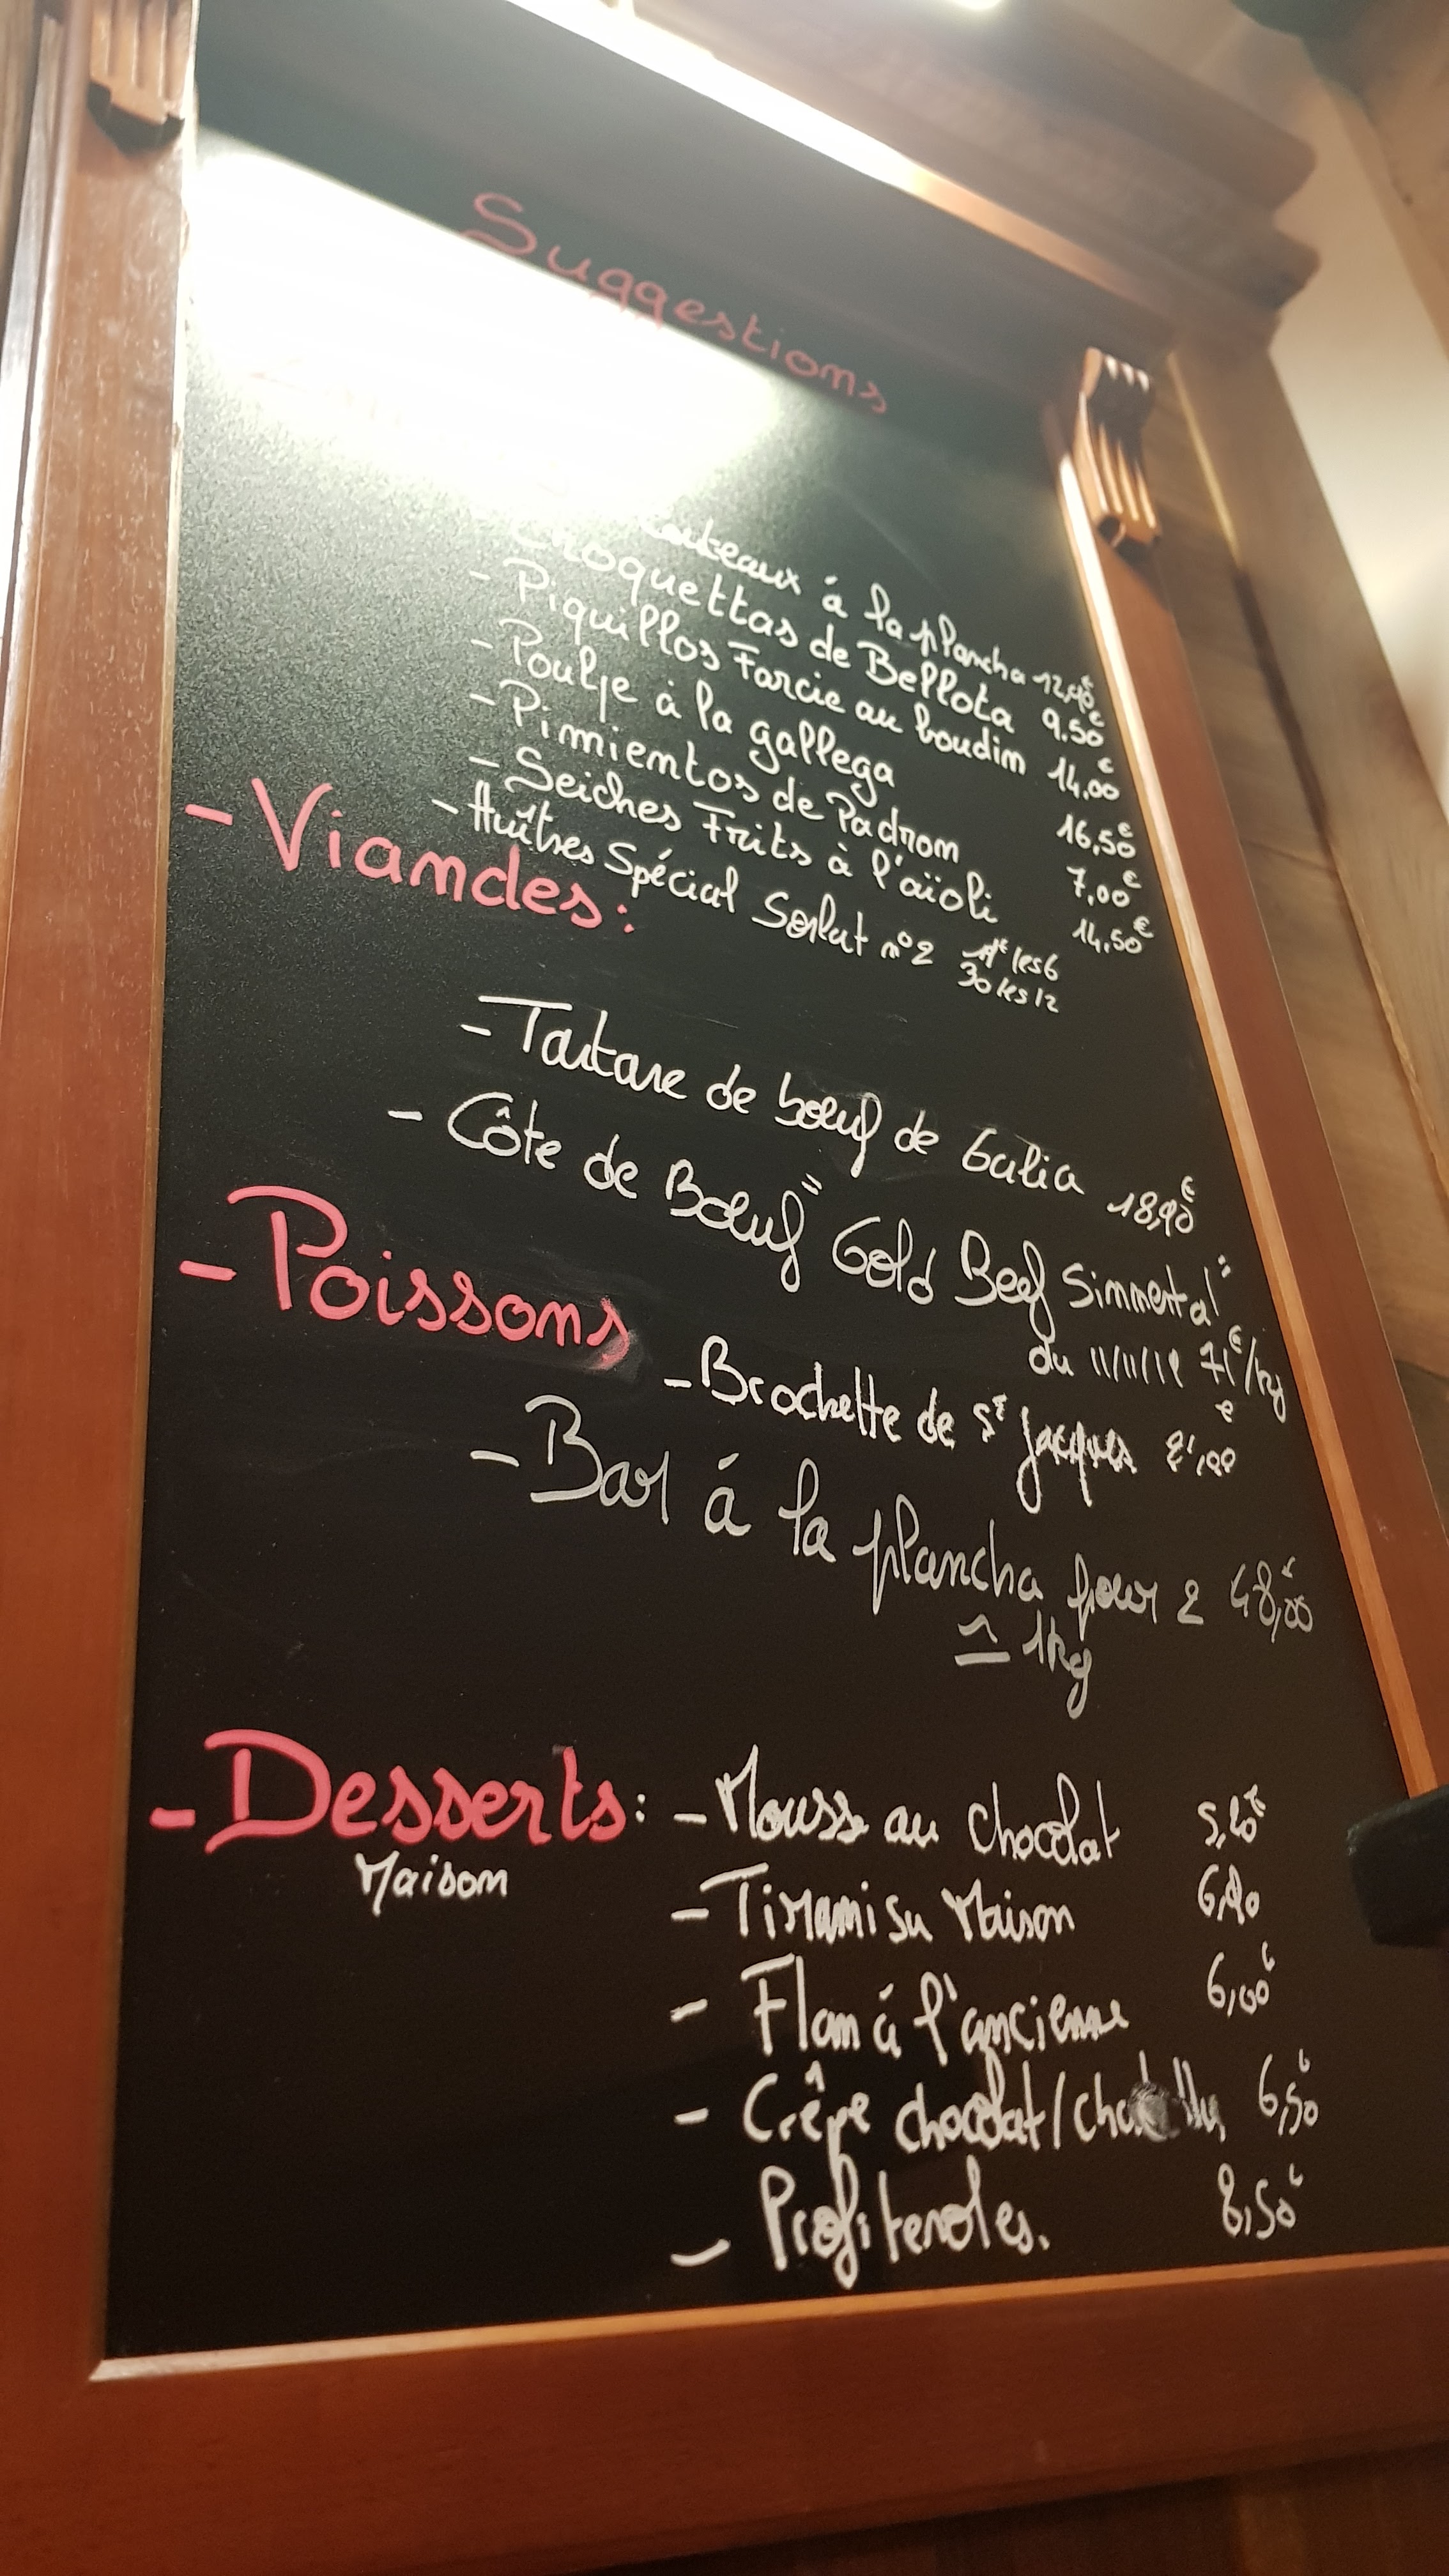 Suggestions
Couteaux à la plancha 12,90€
Croquettas de Bellota 9.50€
- Piquillos Farcie au boudin 14,00€
- Poulpe à la gallega 16,50€
- Pimientos de Padron 7,00€
- Seiches Frits à l'aïoli 14.50€
- Huîtres Spécial Sorlut n°2 les 6
30 les 12
- Viandes:
- Tartare de bœuf de Galia 18,90€
- Côte de Bœuf "Gold Beef Simmental"
du 11/11/19 71€/kg
- Poissons
- Brochette de St Jacques
- Bar à la plancha pour 2 48,00€
≃ 1kg
- Desserts:
Maison
- Mousse au chocolat
- Tiramisu Maison
- Flan à l'ancienne 6,00€
- Crêpe chocolat/chantilly 6,50€
- Profiteroles. 8,50€